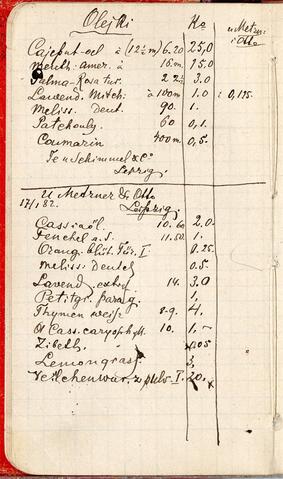 Olejki Ko u Metzn: i Otto
Cajeput-oel à (12½ m) 6.20 25,0
Menth. amer. à 16.m. 15,0
Palma-Rosa tur. 2 2½ 3.0
Lawend. Mitch: à 100m 1.0 : 0,125.
Meliss. Deut. 90. 1.
Patchouly. 60 0,1.
Coumarin 400m. 0,5.
Schimmel & Co
Leipzig.
u Metzner & Otto
17/1 82. Leipzig.
Cassiaöl. 10.60 2.0
Fenchel a.S. 11.50 1.
Orang. blüt. Tür. I. 0.25.
Meliss Deutsch 0.5.
Lavend. extrf 14. 3.0
Petitgr. parag. 1,
Thymen weiss 8-9. 4.
Ol Cass. caryophyll. 10. 1.-
Zibeth. 05
Lemongrass. 3,
Veilchenwur. z. pulv. I. 20.